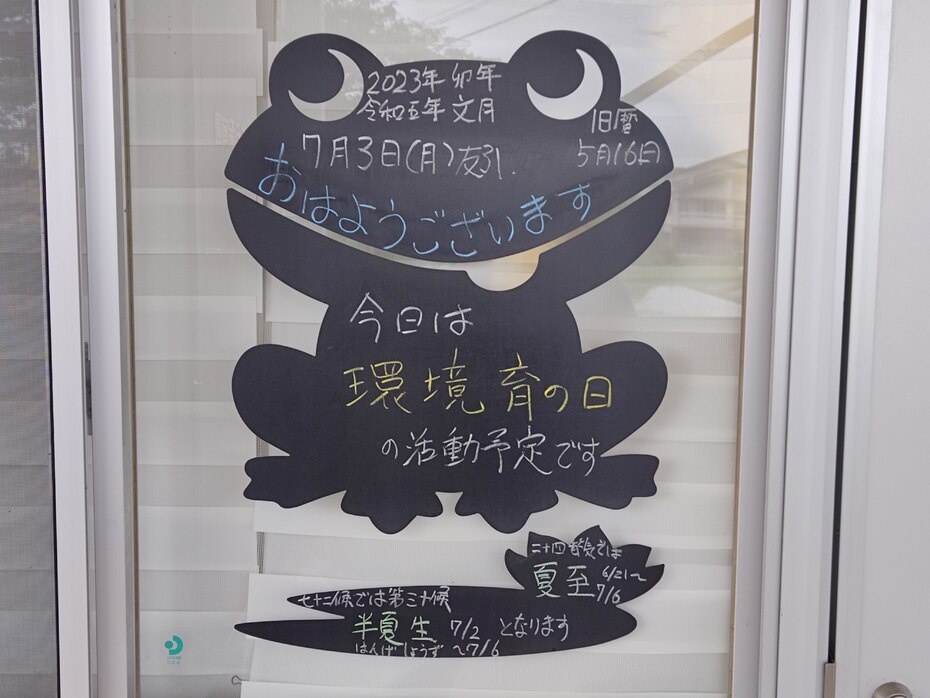 2023年 卯年
令和五年 文月
7月3日(月)友引
旧暦
5月16日
おはようございます
今日は
環境育の日
の活動予定です
二十四節気では
夏至 6/21〜
7/6
七十二候では第三十候
半夏生 7/2 となります
はんげしょうず 〜7/6